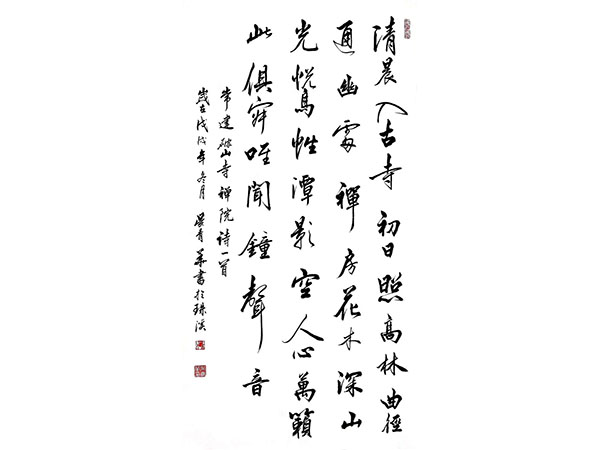 清晨入古寺初日照高林曲徑
通幽處禪房花木深山
光悅鳥性潭影空人心萬籟
此俱寂唯聞鐘聲音
常建破山寺禪院诗一首
歲在戊戌年冬月吴青書於珠溪